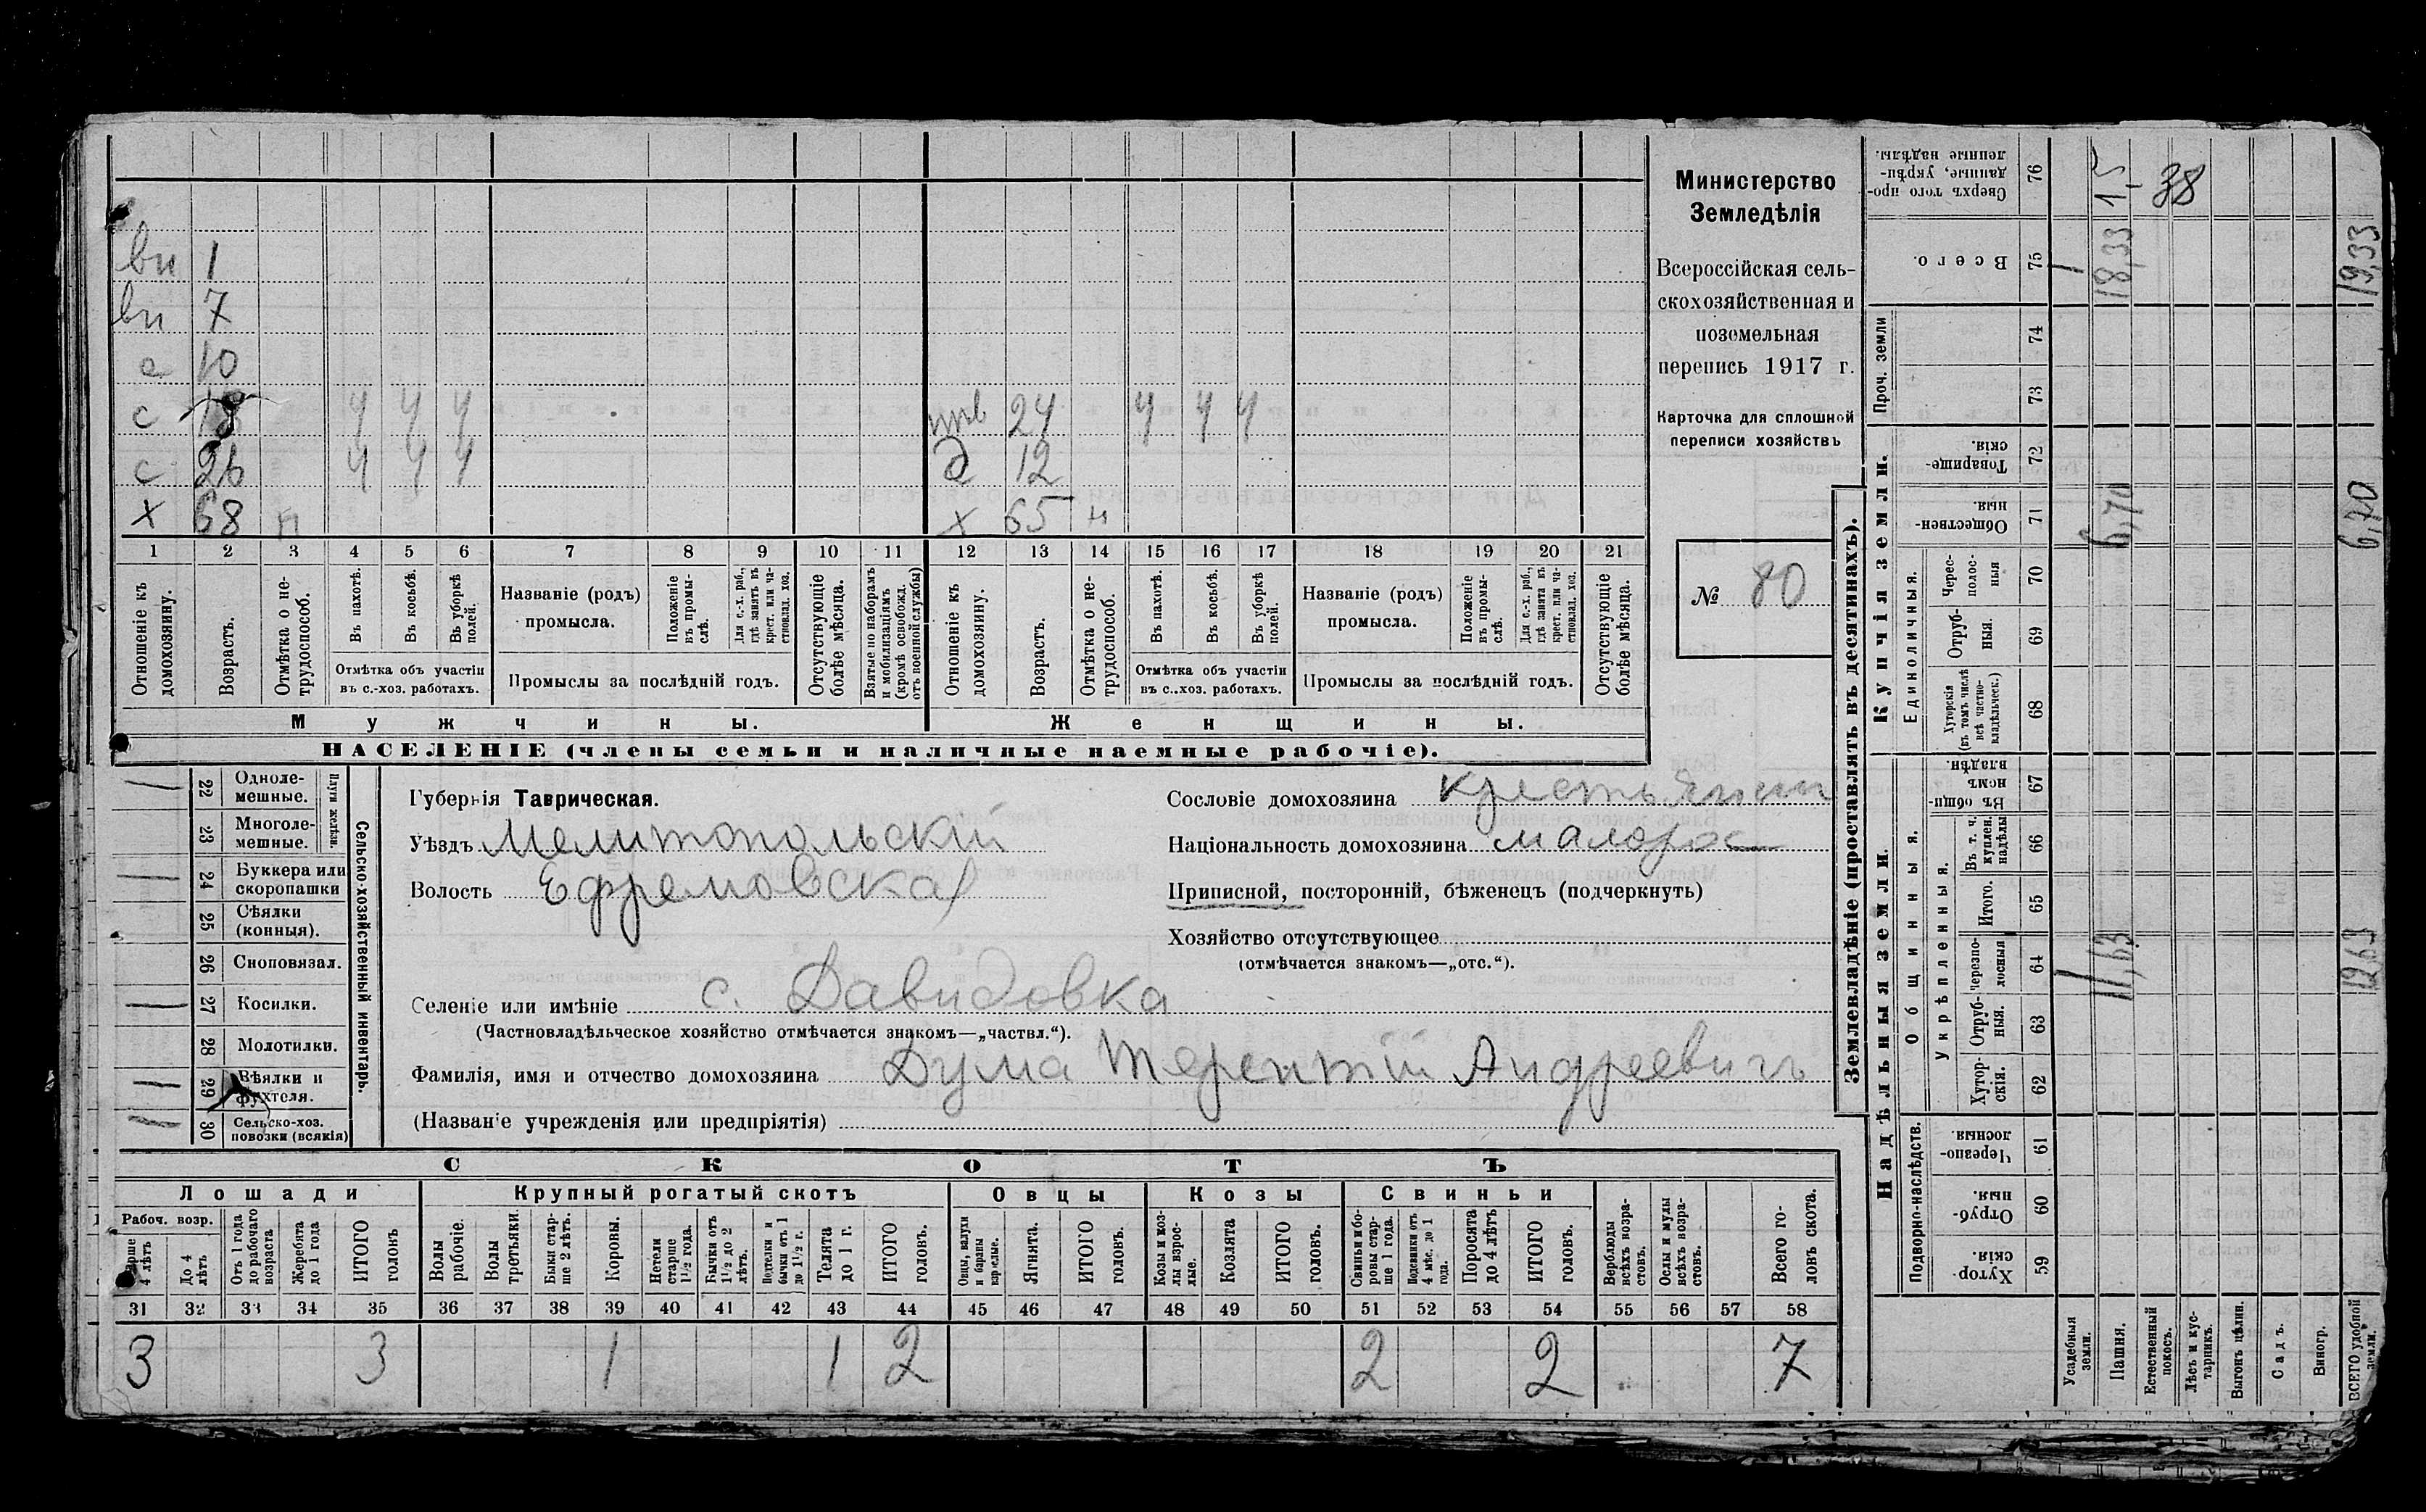 вн 1
вн 7
с 10
с 18 ч ч ч шв 24 ч ч ч
с 26 ч ч ч д 12
х 68 н х 65 н
1 2 3 4 5 6 7 8 9 10 11 12 13 14 15 16 17 18 19 20 21
Отношеніе къ домохозяину.
Возрастъ.
Отмѣтка о не-
трудоспособ.
Въ пахотѣ.
Въ косьбѣ.
Въ уборкѣ полей.
Отмѣтка объ участіи
въ с.-хоз. работахъ.
Названіе (родъ)
промысла.
Положеніе въ промы-
слѣ.
Для с.-х. раб.,
гдѣ занятъ въ
крест. или ча-
стновлад. хоз.
Промыслы за послѣдній годъ.
Отсутствующіе болѣе мѣсяца.
Взятые по наборамъ
и мобилизаціямъ
(кромѣ освобожд.
отъ военной службы)
Отношеніе къ домохозяину.
Возрастъ.
Отмѣтка о не-
трудоспособ.
Въ пахотѣ.
Въ косьбѣ.
Въ уборкѣ полей.
Отмѣтка объ участіи
въ с.-хоз. работахъ.
Названіе (родъ)
промысла.
Положеніе въ промы-
слѣ.
Для с.-х. раб.,
гдѣ занята въ
крест. или ча-
стновлад. хоз.
Промыслы за послѣдній годъ.
Отсутствующіе болѣе мѣсяца.
Мужчины. Женщины.
НАСЕЛЕНІЕ (члены семьи и наличные наемные рабочіе).
Министерство
Земледѣлія
Всероссійская сель-
скохозяйственная и
поземельная
перепись 1917 г.
Карточка для сплошной
переписи хозяйствъ
№ 80
Сельско-хозяйственный инвентарь.
Плуги желѣзн.
22 Одноле-
мешные.
23 Многоле-
мешные.
24 Буккера или
скоропашки
25 Сѣялки
(конныя).
26 Сноповязал.
27 Косилки.
28 Молотилки.
29 Вѣялки и
фухтеля.
30 Сельско-хоз.
повозки (всякія)
Губернія Таврическая.
Уѣздъ Мелитопольскій
Волость Ефремовская
Сословіе домохозяина крестьянин
Національность домохозяина малорос
Приписной, посторонній, бѣженецъ (подчеркнуть)
Хозяйство отсутствующее
(отмѣчается знакомъ—„отс.“).
Селеніе или имѣніе с. Давидовка
(Частновладѣльческое хозяйство отмѣчается знакомъ—„частвл.“).
Фамилія, имя и отчество домохозяина Дума Терентій Андреевичъ
(Названіе учрежденія или предпріятія)
СКОТЪ
Лошади Крупный рогатый скотъ Овцы Козы Свиньи
Рабоч. возр.
4 лѣтъ
До 4 лѣтъ
Отъ 1 года
до рабочаго
возраста
Жеребята
до 1 года
ИТОГО головъ
Волы рабочіе.
Волы третьяки.
Быки стар-
ше 2 лѣтъ.
Коровы.
Нетели
старше
1½ года.
Бычки отъ
1½ до 2
лѣтъ.
Нетелки и
бычки отъ 1
до 1½ г.
Телята
до 1 г.
ИТОГО головъ.
Овцы, валухи
и бараны
взрослые.
Ягнята.
ИТОГО головъ.
Козы и коз-
лы взрос-
лые.
Козлята
ИТОГО головъ.
Свиньи и бо-
ровы стар-
ше 1 года.
Подсвинки отъ
4 мѣс. до 1
года.
Поросята
до 4 лѣтъ
ИТОГО головъ.
Верблюды
всѣхъ возра-
стовъ.
Ослы и мулы
всѣхъ возра-
стовъ.
Всего го-
ловъ скота.
31 32 33 34 35 36 37 38 39 40 41 42 43 44 45 46 47 48 49 50 51 52 53 54 55 56 57 58
3 3 1 1 2 2 2 7
Землевладѣніе (проставлять въ десятинахъ).
Надѣльныя земли. Купчія земли. Проч. земли
Подворно-наслѣдств.
Общинныя.
Укрѣпленныя.
Единоличныя.
Хутор-
скія. 59
Отруб-
ныя. 60
Черезпо-
лосныя 61
Хутор-
скія. 62
Отруб-
ныя. 63
Черезпо-
лосныя 64
Итого. 65
Въ т. ч.
куплен.
надѣлы 66
Въ общин-
номъ
владѣн. 67
Хуторскія
(въ томъ числѣ
всѣ частно-
владѣльческ.) 68
Отруб-
ныя. 69
Черес-
полос-
ныя 70
Обществен-
ныя. 71
Товарище-
скія 72
73
74
Всего. 75
Сверхъ того про-
данные, укрѣп-
ленные надѣлы. 76
Усадебныя
земли. 1 1
Пашня. 11,63 6,70 18,33 15
Естественный
покосъ. 38
Лѣсъ и кус-
тарникъ.
Выгонъ цѣлин.
Садъ.
Виногр.
ВСЕГО удобной
земли. 12,63 6,70 19,33